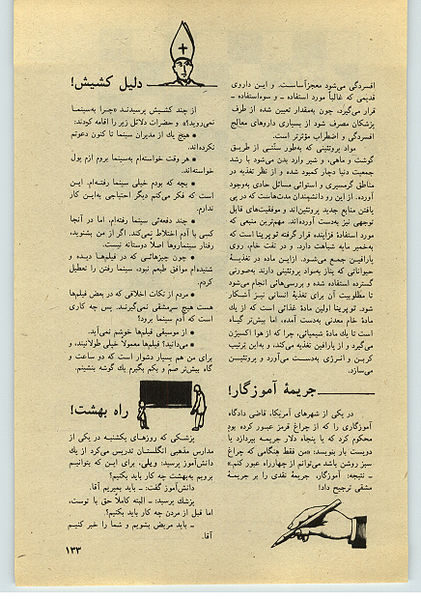 افسردگی می‌شود معجزآساست. و این داروی
قدیمی که غالباً مورد استفاده ـ و سوءاستفاده ـ
قرار می‌گیرد، چون به‌مقدار تعیین شده از طرف
پزشکان مصرف شود از بسیاری داروهای معالج
افسردگی و اضطراب مؤثرتر است.
مواد پروتئینی که به‌طور سنّتی از طریق
گوشت و ماهی، و شیر وارد بدن می‌شود با رشد
جمعیت دنیا دچار کمبود شده و از نظر تغذیه در
مناطق گرمسیری و استوائی مسائل حادی به‌وجود
آورده. از این رو دانشمندان مدت‌هاست که در پی
یافتن منابع جدید پروتئین‌اند و موفقیت‌های قابل
توجهی نیز به‌دست آورده‌اند. مهم‌ترین منبعی که
مورد استفادهٔ فزاینده قرار گرفته توپرینا است که
به‌خمیر مایه شباهت دارد. و در نفت خام، روی
پارافین جمع می‌شود. ازاین ماده در تغذیهٔ
حیواناتی که نیاز به‌مواد پروتئینی دارند به‌صورتی
گسترده استفاده شده و بررسی‌هائی انجام می‌شود
تا مطلوبیت آن برای تغذیهٔ انسانی نیز آشکار
شود. توپرینا اولین مادهٔ غذائی است که از یك
مادهٔ خام معدنی به‌دست آمده، اما بیش‌تر گیاه
است تا یك مادهٔ شیمیائی، چرا که از هوا اکسیژن
می‌گیرد و از پارافین تغذیه می‌کند، و به‌این ترتیب
کربن و انرژی به‌دست می‌آورد و پروتئین
می‌سازد.
جریمهٔ آموزگار!
در یکی از شهرهای آمریکا، قاضی دادگاه
آموزگاری را که از چراغ قرمز عبور کرده بود
محکوم کرد که یا پنجاه دلار جریمه بپردازد یا
دویست بار بنویسد: «من فقط هنگامی که چراغ
سبز روشن باشد می‌توانم از چهارراه عبور کنم.»
ـ نتیجه: آموزگار، جریمهٔ نقدی را بر جریمهٔ
مشقی ترجیح داد!
دلیل کشیش!
از چند کشیش پرسیدند «چرا به‌سینما
نمی‌روید؟» و حضرات دلائل زیر را اقامه کردند:
● هیچ یك از مدیران سینما تا کنون دعوتم
نکرده‌اند.
● هر وقت خواسته‌ام به‌سینما بروم ازم پول
خواسته‌اند.
● بچه که بودم خیلی سینما رفته‌ام. این
است که فکر می‌کنم دیگر احتیاجی به‌این کار
ندارم.
● چند دفعه‌ئی سینما رفته‌ام، اما در آنجا
کسی با آدم اختلاط نمی‌کند. اگر از من بشنوید،
رفتار سینماروها اصلاً دوستانه نیست.
● چون چیزهائی که در فیلم‌ها دیده و
شنیده‌ام موافق طبعم نبود، سینما رفتن را تعطیل
کردم.
● مردم از نکات اخلاقی که در بعض فیلم‌ها
هست هیچ سرمشقی نمی‌گیرند. پس چه کاری
است که آدم سینما برود؟
● از موسیقی فیلم‌ها خوشم نمی‌آید.
● می‌دانید؟ فیلم‌ها معمولا خیلی طولانیند، و
برای من هم بسیار دشوار است که دو ساعت و
گاه بیش‌تر صُمّ و بُکم بگیرم یك گوشه بنشینم.
راه بهشت!
پزشکی که روزهای یکشنبه در یکی از
مدارس مذهبی انگلستان تدریس می‌کرد از یك
دانش‌آموز پرسید: ویلی، برای این که بتوانیم
برویم به‌بهشت چه کار باید بکنیم؟
دانش‌آموز گفت: ـ باید بمیریم آقا.
پزشك پرسید: ـ البته کاملاً حق با توست،
اما قبل از مردن چه کار باید بکنیم؟
ـ باید مریض بشویم و شما را خبر کنیم
آقا.
۱۳۳